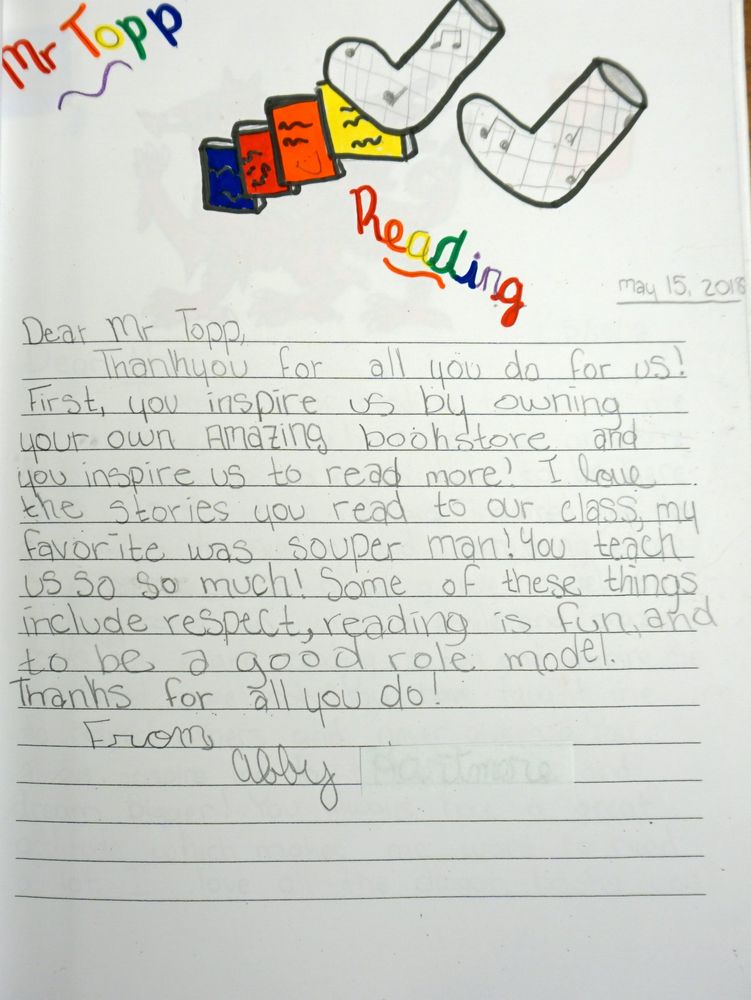 Mr Topp
Reading
may 15, 2018
Dear Mr Topp,
Thankyou for all you do for us!
First, you inspire us by owning
your own Amazing bookstore and
you inspire us to read more! I love
the stories you read to our class, my
favorite was souper man! You teach
us so so much! Some of these things
include respect, reading is fun, and
to be a good role model.
Thanks for all you do!
From,
Abby